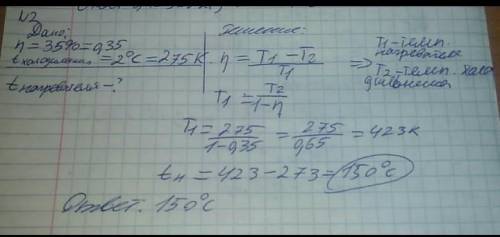 N2
Дано: Решение:
η = 35% = 0,35
t холодильника = 2°C = 275K
t нагревателя - ?
η = T1 - T2 / T1 => T1 - темп. нагревателя
T2 - темп. холодильника
T1 = T2 / 1-η
T1 = 275 / 1-0,35 = 275 / 0,65 = 423K
tн = 423 - 273 = 150°C
Ответ. 150°C